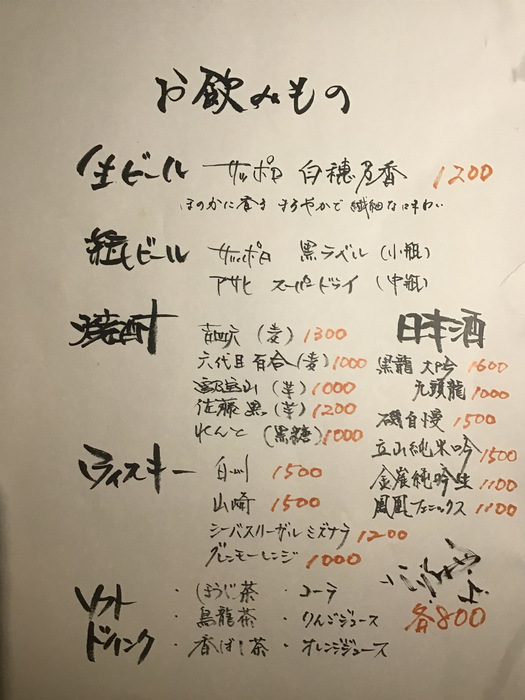 お飲みもの
生ビール サッポロ 白穂乃香 1200
ほのかに香り まろやかで 繊細な味わい
瓶ビール サッポロ 黒ラベル (小瓶)
アサヒ スーパードライ (中瓶)
焼酎
(麦) 1300
六代目百合 (麦) 1000
富乃宝山 (芋) 1000
佐藤 黒 (芋) 1200
れんと (黒糖) 1000
日本酒
黒龍 大吟 1600
九頭龍 1000
磯自慢 1500
立山純米吟 1500
金雀純吟生 1100
鳳凰フェニックス 1100
ウイスキー
白州 1500
山崎 1500
シーバスリーガル ミズナラ 1200
グレンモーレンジ 1000
ソフトドリンク
・ほうじ茶 ・コーラ
・烏龍茶 ・りんごジュース
・香ばし茶 ・オレンジジュース
各800